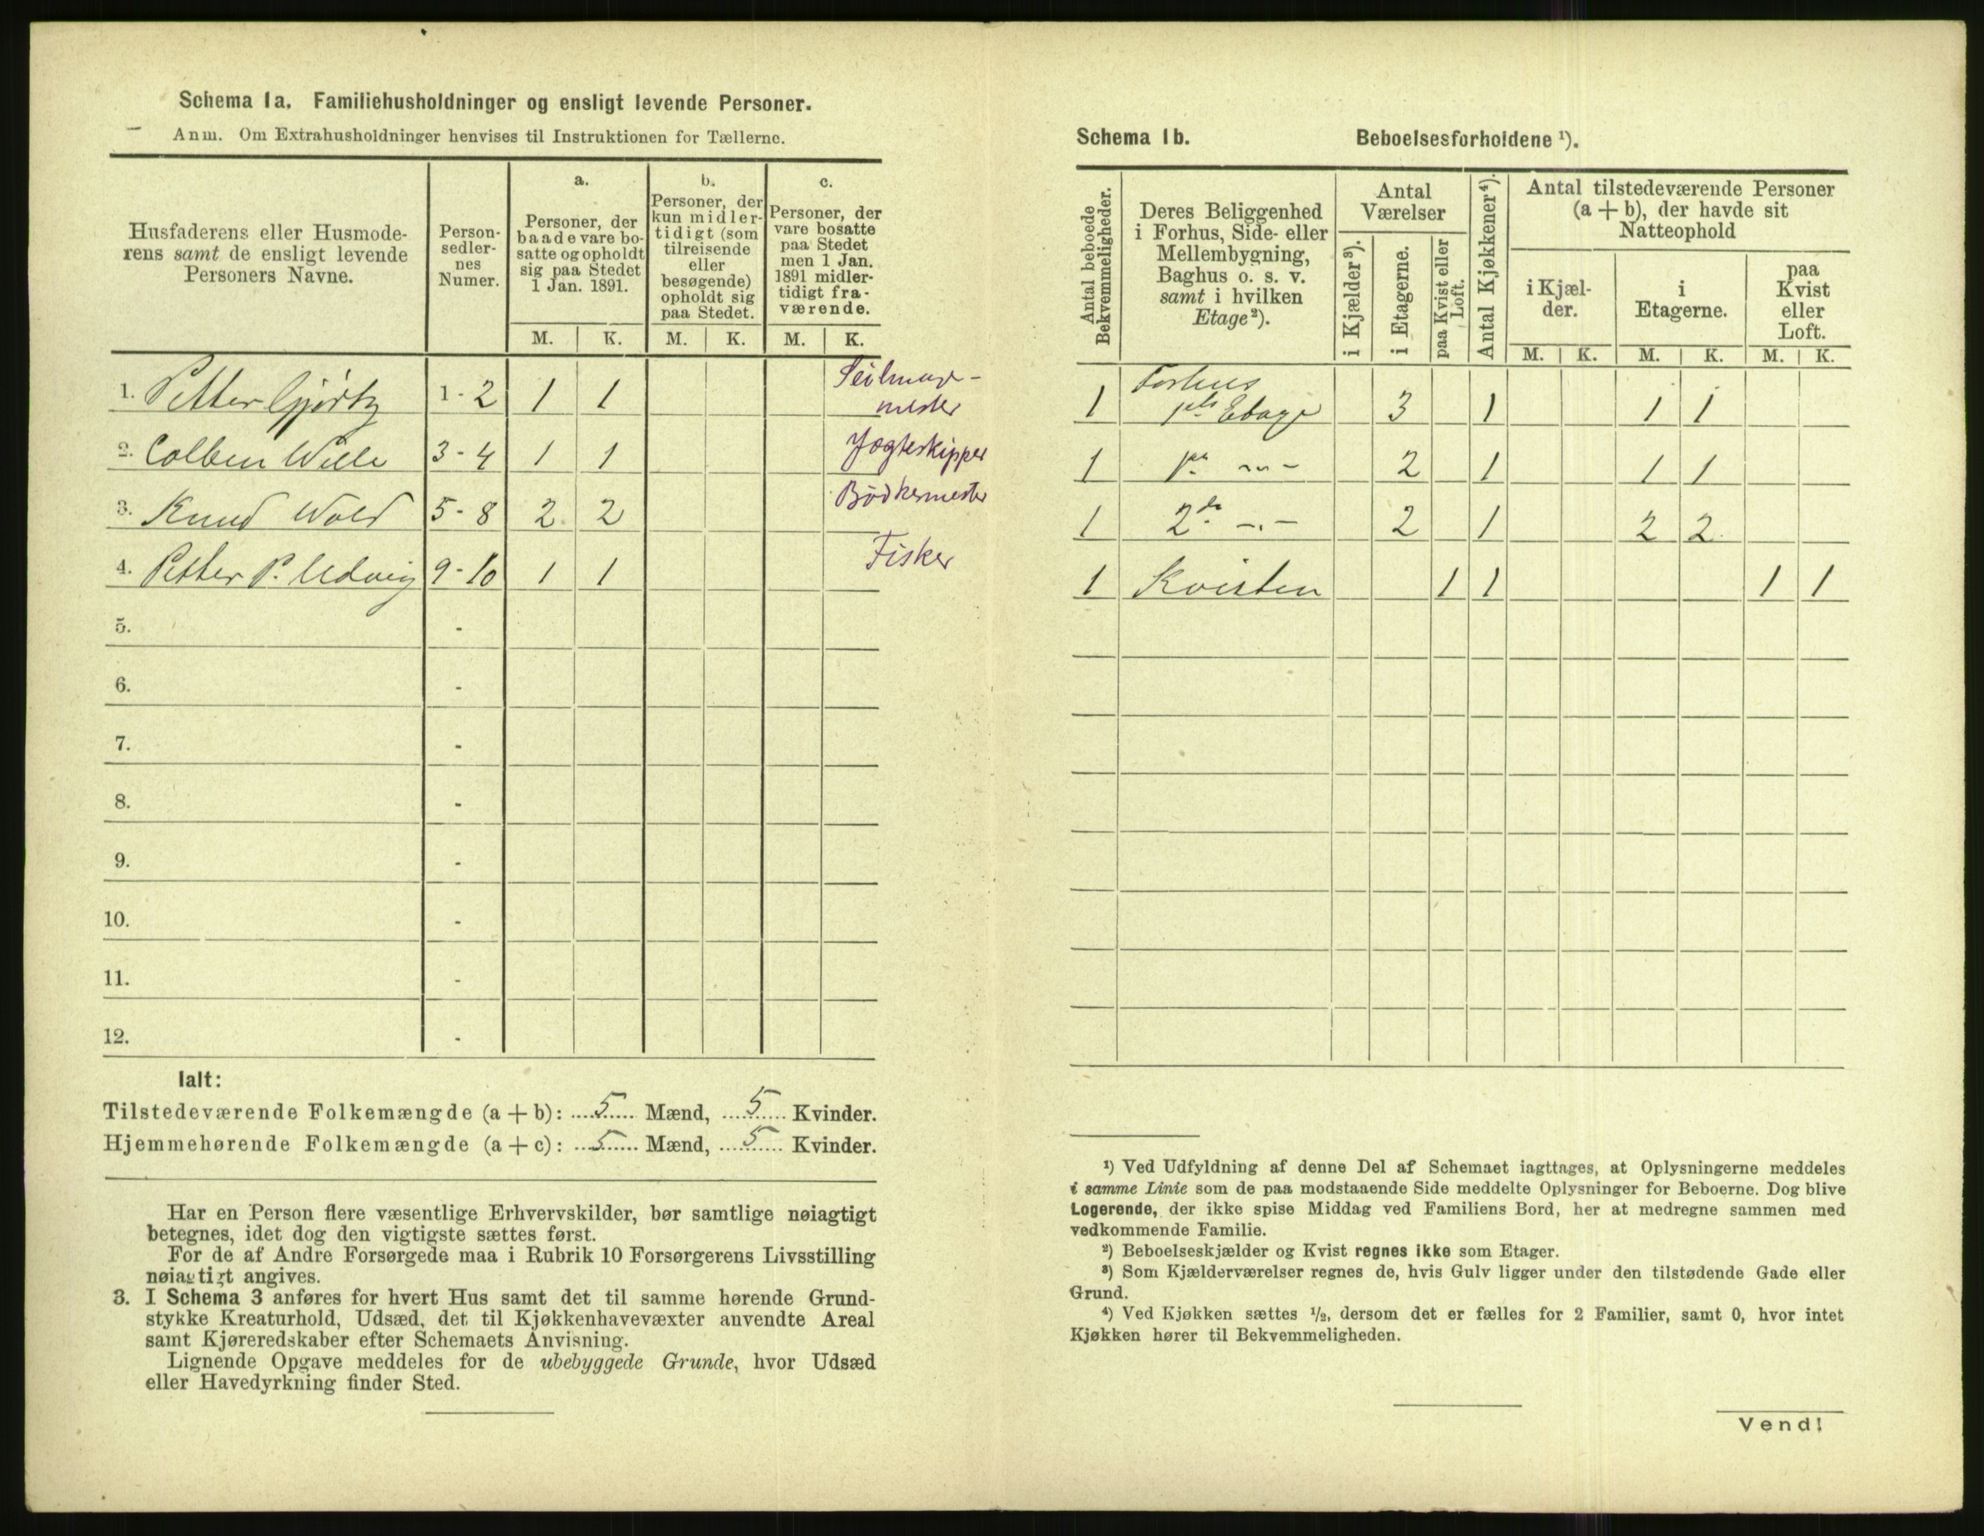 Schema 1a. Familiehusholdninger og ensligt levende Personer.
Anm. Om Extrahusholdninger henvises til Instruktionen for Tællerne.
Husfaderens eller Husmode-
rens samt de ensligt levende
Personers Navne.
Person-
sedler-
nes
Numer.
a.
Personer, der
baade vare bo-
satte og opholdt
sig paa Stedet
1 Jan. 1891.
b.
Personer, der
kun midler-
tidigt (som
tilreisende
eller
besøgende)
opholdt sig
paa Stedet.
c.
Personer, der
vare bosatte
paa Stedet
men 1 Jan.
1891 midler-
tidigt fra-
værende.
M. K. M. K. M. K.
1. Petter Gjörtz 1 - 2 1 1 Seilmager-
mester
2. Colben Wiele 3 - 4 1 1 Jægteskipper
3. Knud Wold 5 - 8 2 2 Bødkermester
4. Petter P. Udvig 9 - 10 1 1 Fisker
5. -
6. -
7. -
8. -
9. -
10. -
11. -
12. -
Ialt:
Tilstedeværende Folkemængde (a + b): 5 Mænd, 5 Kvinder.
Hjemmehørende Folkemængde (a + c): 5 Mænd, 5 Kvinder.
Har en Person flere væsentlige Erhvervskilder, bør samtlige nøiagtigt
betegnes, idet dog den vigtigste sættes først.
For de af Andre Forsørgede maa i Rubrik 10 Forsørgerens Livsstilling
nøiagtigt angives.
3. I Schema 3 anføres for hvert Hus samt det til samme hørende Grund-
stykke Kreaturhold, Udsæd, det til Kjøkkenhavevæxter anvendte Areal
samt Kjøreredskaber efter Schemaets Anvisning.
Lignende Opgave meddeles for de ubebyggede Grunde, hvor Udsæd
eller Havedyrkning finder Sted.
Schema 1b. Beboelsesforholdene ¹).
Antal beboede
Bekvemmeligheder.
Deres Beliggenhed
i Forhus, Side- eller
Mellembygning,
Baghus o. s. v.
samt i hvilken
Etage²).
Antal
Værelser
i Kjælder³).
i Etagerne.
paa Kvist eller
Loft.
Antal Kjøkkener⁴).
Antal tilstedeværende Personer
(a + b), der havde sit
Natteophold
i Kjæl-
der.
i
Etagerne.
paa
Kvist
eller
Loft.
M. K. M. K. M. K.
1 Forhus
1ste Etage 3 1 1 1
1 1ste -„- 2 1 1 1
1 2de -„- 2 1 2 2
1 Kvisten 1 1 1 1
¹) Ved Udfyldning af denne Del af Schemaet iagttages, at Oplysningerne meddeles
i samme Linie som de paa modstaaende Side meddelte Oplysninger for Beboerne. Dog blive
Logerende, der ikke spise Middag ved Familiens Bord, her at medregne sammen med
vedkommende Familie.
²) Beboelseskjælder og Kvist regnes ikke som Etager.
³) Som Kjælderværelser regnes de, hvis Gulv ligger under den tilstødende Gade eller
Grund.
⁴) Ved Kjøkken sættes ½, dersom det er fælles for 2 Familier, samt 0, hvor intet
Kjøkken hører til Bekvemmeligheden.
Vend!